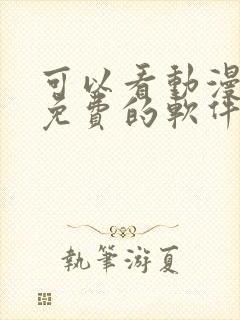 可以看動漫
免費的軟件
執筆游夏